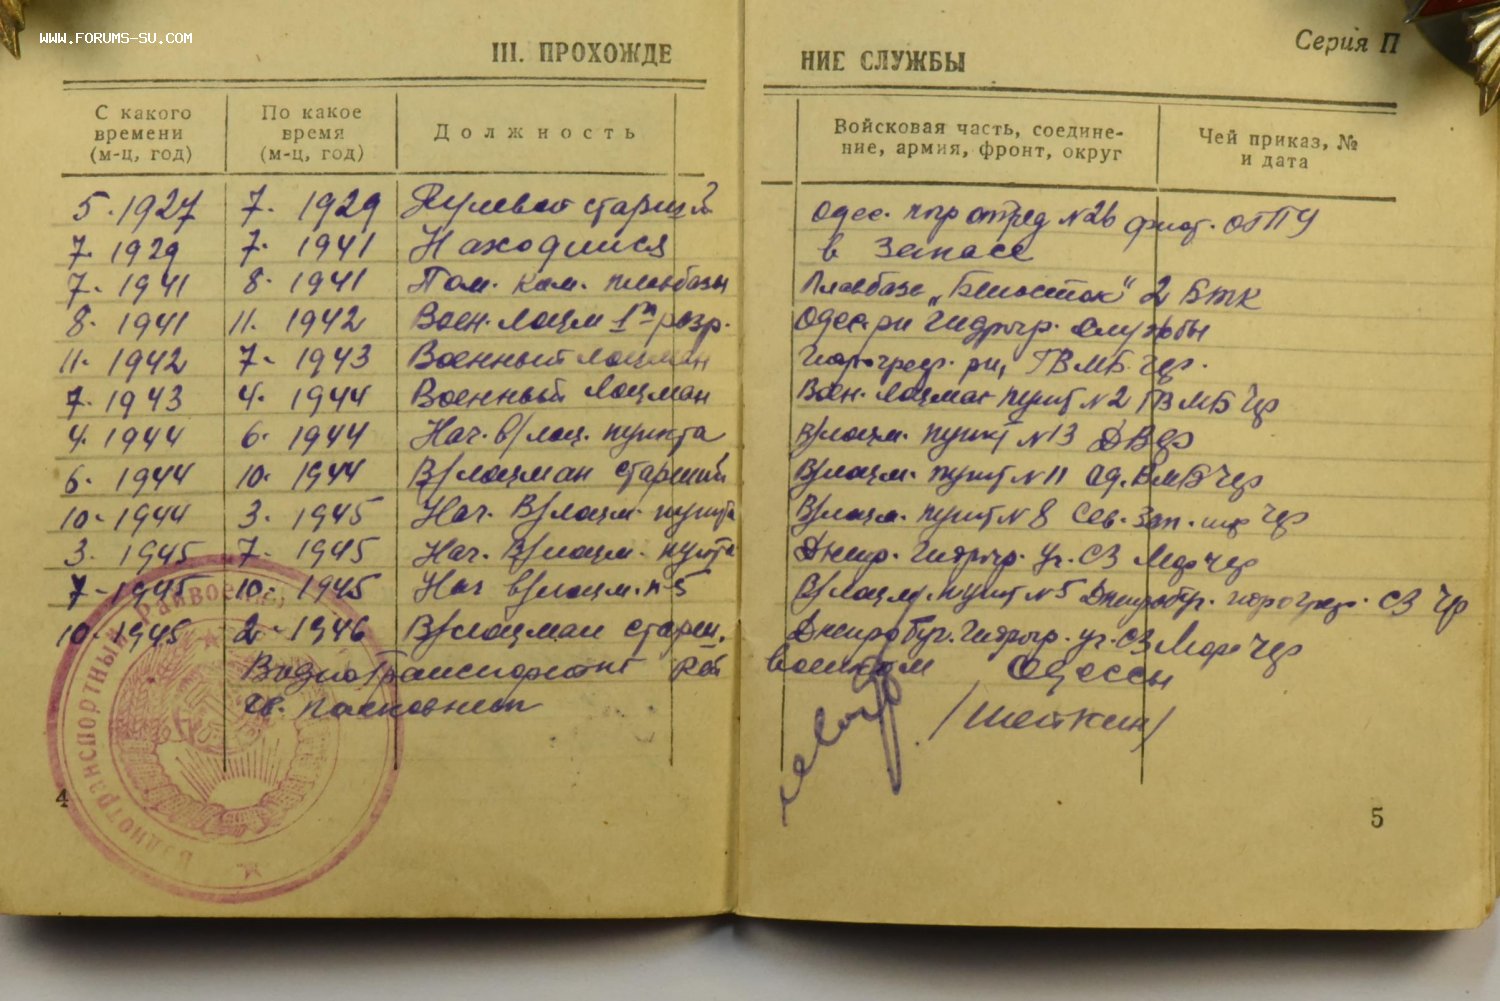 WWW.FORUMS-SU.COM
III. ПРОХОЖДЕНИЕ СЛУЖБЫ
Серия П
С какого времени (м-ц, год) По какое время (м-ц, год) Должность Войсковая часть, соединение, армия, фронт, округ Чей приказ, № и дата
5. 1927 7. 1929 Рулевой старший Одес. погр отряд №26 флот. ОГПУ
7. 1929 7. 1941 Находился в Запасе
7. 1941 8. 1941 Пом. Ком. плавбазы Плавбаза „Белосток" 2 БТК
8. 1941 11. 1942 Воен. Лоцм 1го разр. Одес. рн Гидрогр. Службы
11. 1942 7. 1943 Военный Лоцман рн, ГВМБ. Чф.
7. 1943 4. 1944 Военный Лоцман Воен. Лоцман пункт №2 ГВМБ Чф
4. 1944 6. 1944 Нач. в/лоц. пункта В/лоцм. пункт №13
6. 1944 10. 1944 В/лоцман старший В/лоцм. пункт №11 Од. ВМБ Чф
10. 1944 3. 1945 Нач. В/лоцм. пункта В/лоцм. пункт №8 Сев. Зап. Чф
3. 1945 7. 1945 Нач. В/лоцм. пункта Днепр. Гидрогр. Уч. СЗ Мор Чф
7. 1945 10. 1945 Нач В/лоцм. п-5 В/лоцм. пункт №5 Днепробуг. СЗ Чф
10. 1945 2. 1946 В/лоцман старш. Днепробуг. Гидрогр. уч. СЗ Мор Чф
Воднотранспортный Рай военком Одессы
гв. полковник /Шеткин/
Воднотранспортный Райвоен
4
5